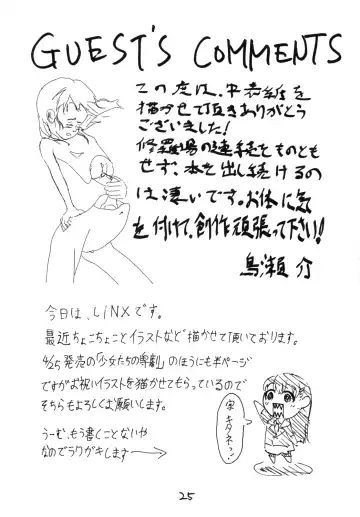 GUEST'S COMMENTS
この度は、中表紙を
描かせて頂きありがとう
ございました!
修羅場の連続をものとも
せず、本を出し続けるの
は凄いです。お体に気
を付けて、創作頑張って下さい!
鳥瀬 介
今日は、LINXです。
最近ちょこちょことイラストなど描かせて頂いております。
4/25発売の「少女たちの寡劇」のほうにも半ページ
ですがお祝いイラストを描かせてもらっているので
そちらもよろしくお願いします。
うーむ、もう書くことないや
なのでラクガキします→
字キタネっ!
25